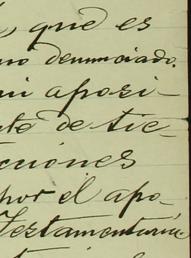 , que es
no denunciado.
mi aposi-
to de tie-
cciones
por el apo-
Testamentaria